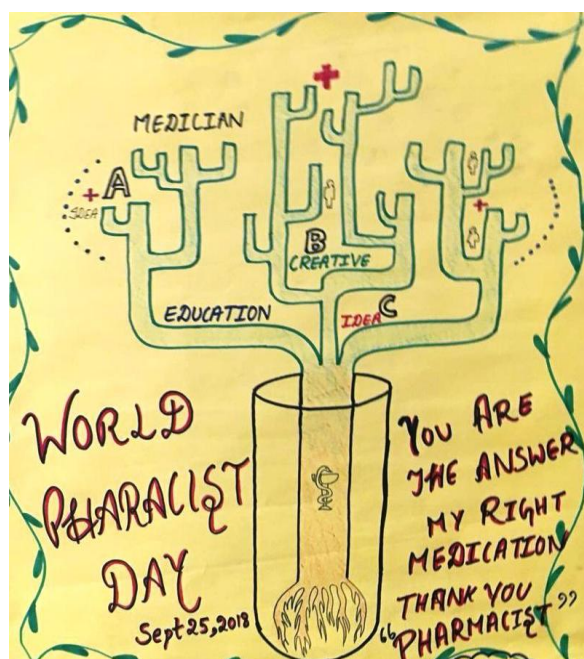 MEDICIAN
+ A
IDEA
B
CREATIVE
EDUCATION
IDEA C
WORLD
PHARACIST
DAY
Sept 25, 2018
YOU ARE
THE ANSWER
MY RIGHT
MEDICATION
THANK YOU
“PHARMACIST”